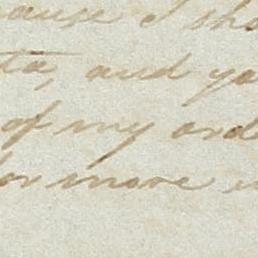 cause I sho
ta, and ya
of my ord
or more